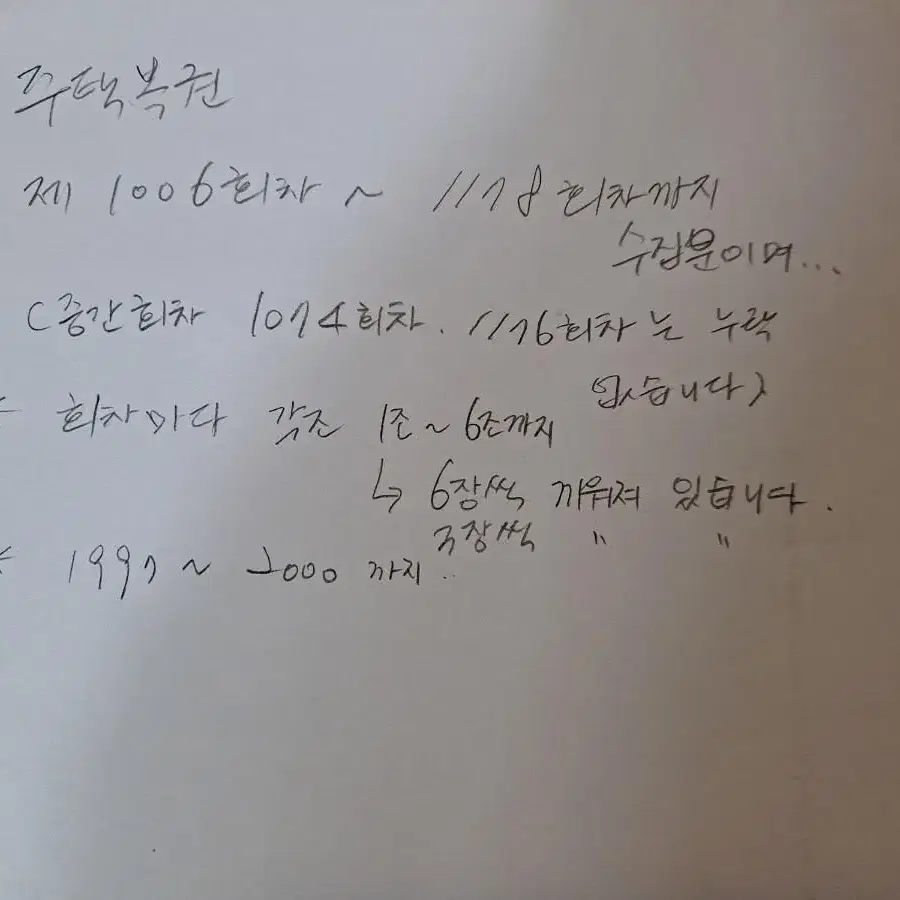 주택복권
제 1006회차 ~ 1178회차까지
수집분이며...
(중간회차 1074회차. 1176회차는 누락
있습니다)
회차마다 각조 1조~6조까지
↳ 6장씩 끼워져 있습니다.
국장씩 〃 〃
1997 ~ 2000 까지..